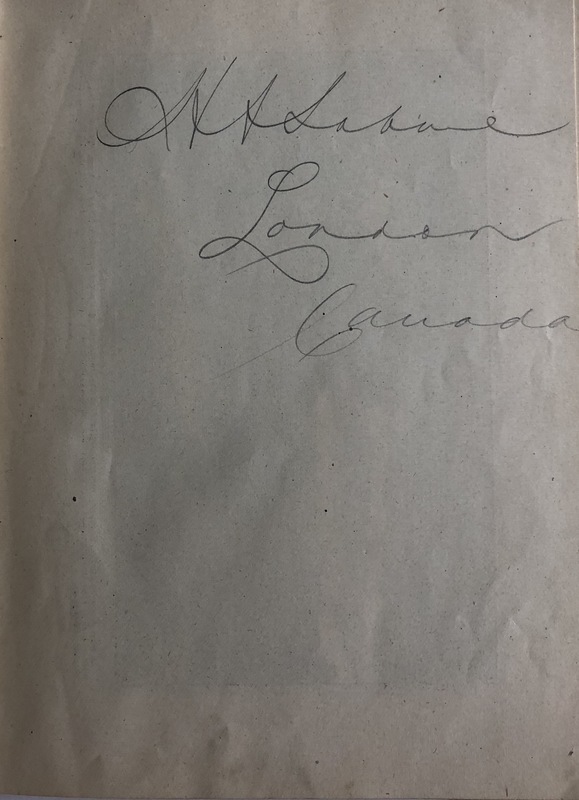 H A Sabine
London
Canada